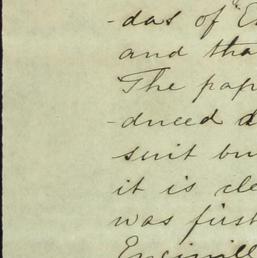 -das of "E
and tha
The pap
-duced d
suit bu
it is cle
was first
Encinill